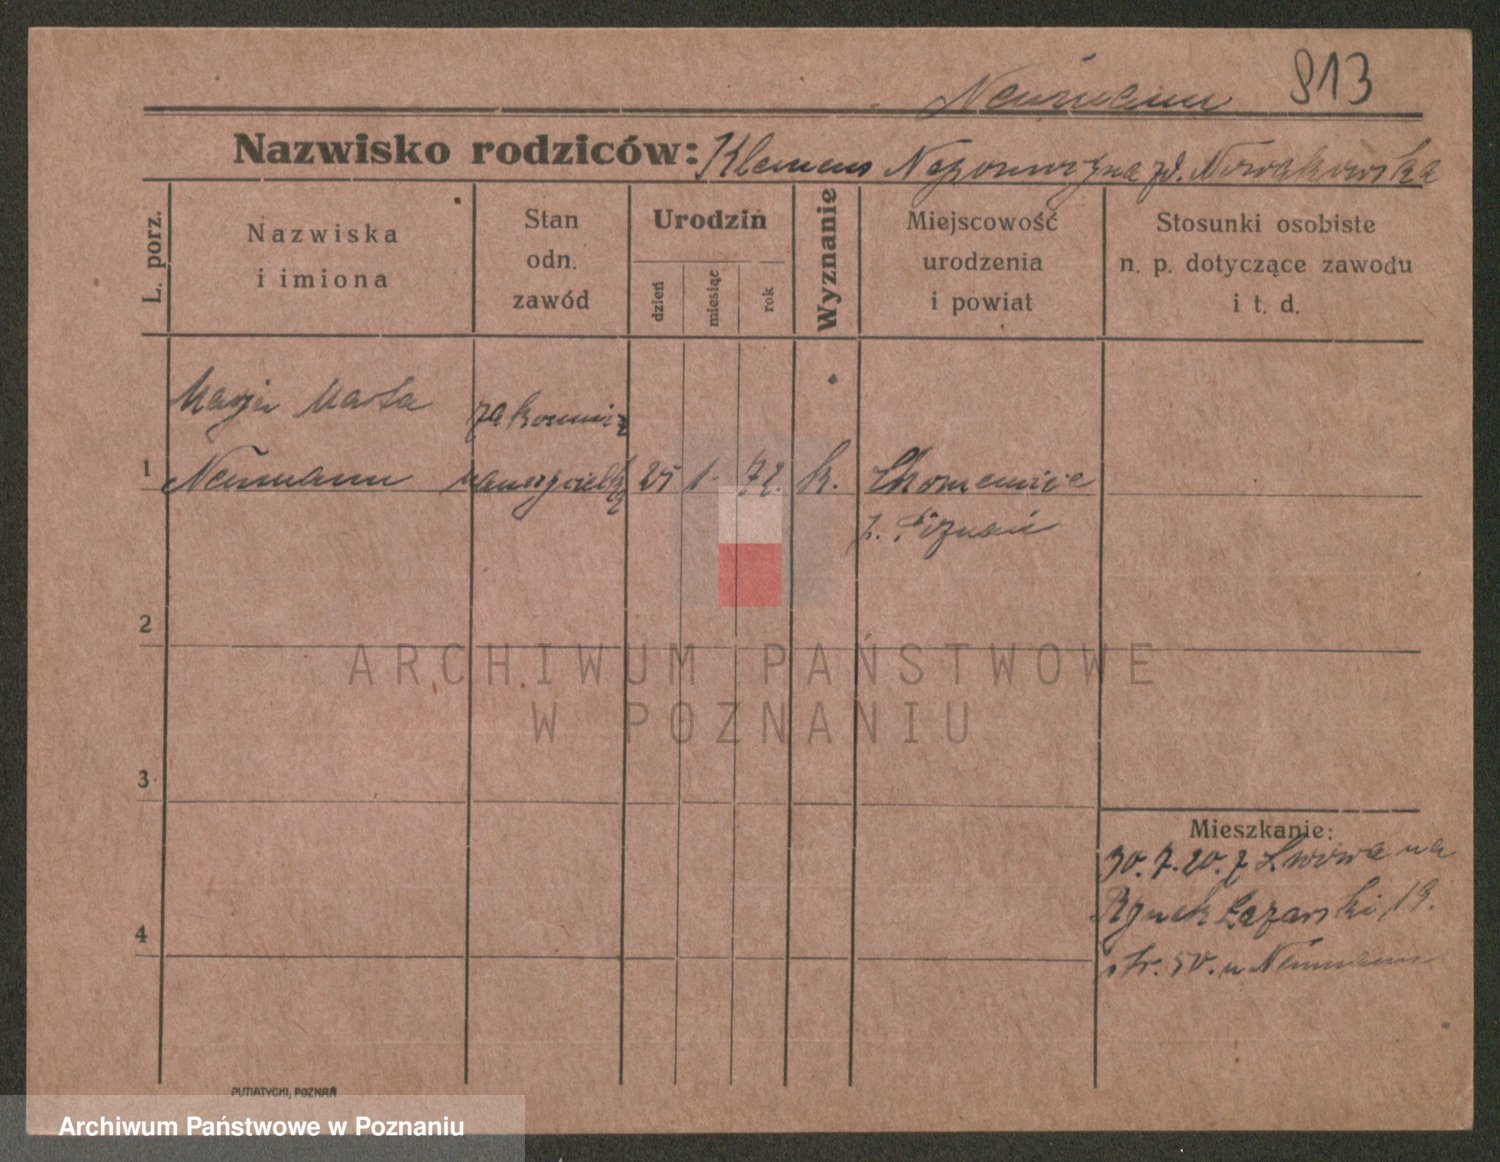 Neumann 913
Nazwisko rodziców: Klemens Nepomucyna zd. Nowakowska
L. porz.
Nazwiska
i imiona
Stan
odn.
zawód
Urodzin
dzień
miesiąc
rok
Wyznanie
Miejscowość
urodzenia
i powiat
Stosunki osobiste
n. p. dotyczące zawodu
i t. d.
Marja Marta zakonnica
1 Neumann nauczycielka 25 1. 72. k. Chomencice
p. Poznań
2
ARCHIWUM PAŃSTWOWE
W POZNANIU
3
Mieszkanie:
30. 7. 20. z Lwowa na
Rynek Łazarski 13.
4
str. 50. u Neumann
PUTIATYCKI, POZNAŃ
Archiwum Państwowe w Poznaniu